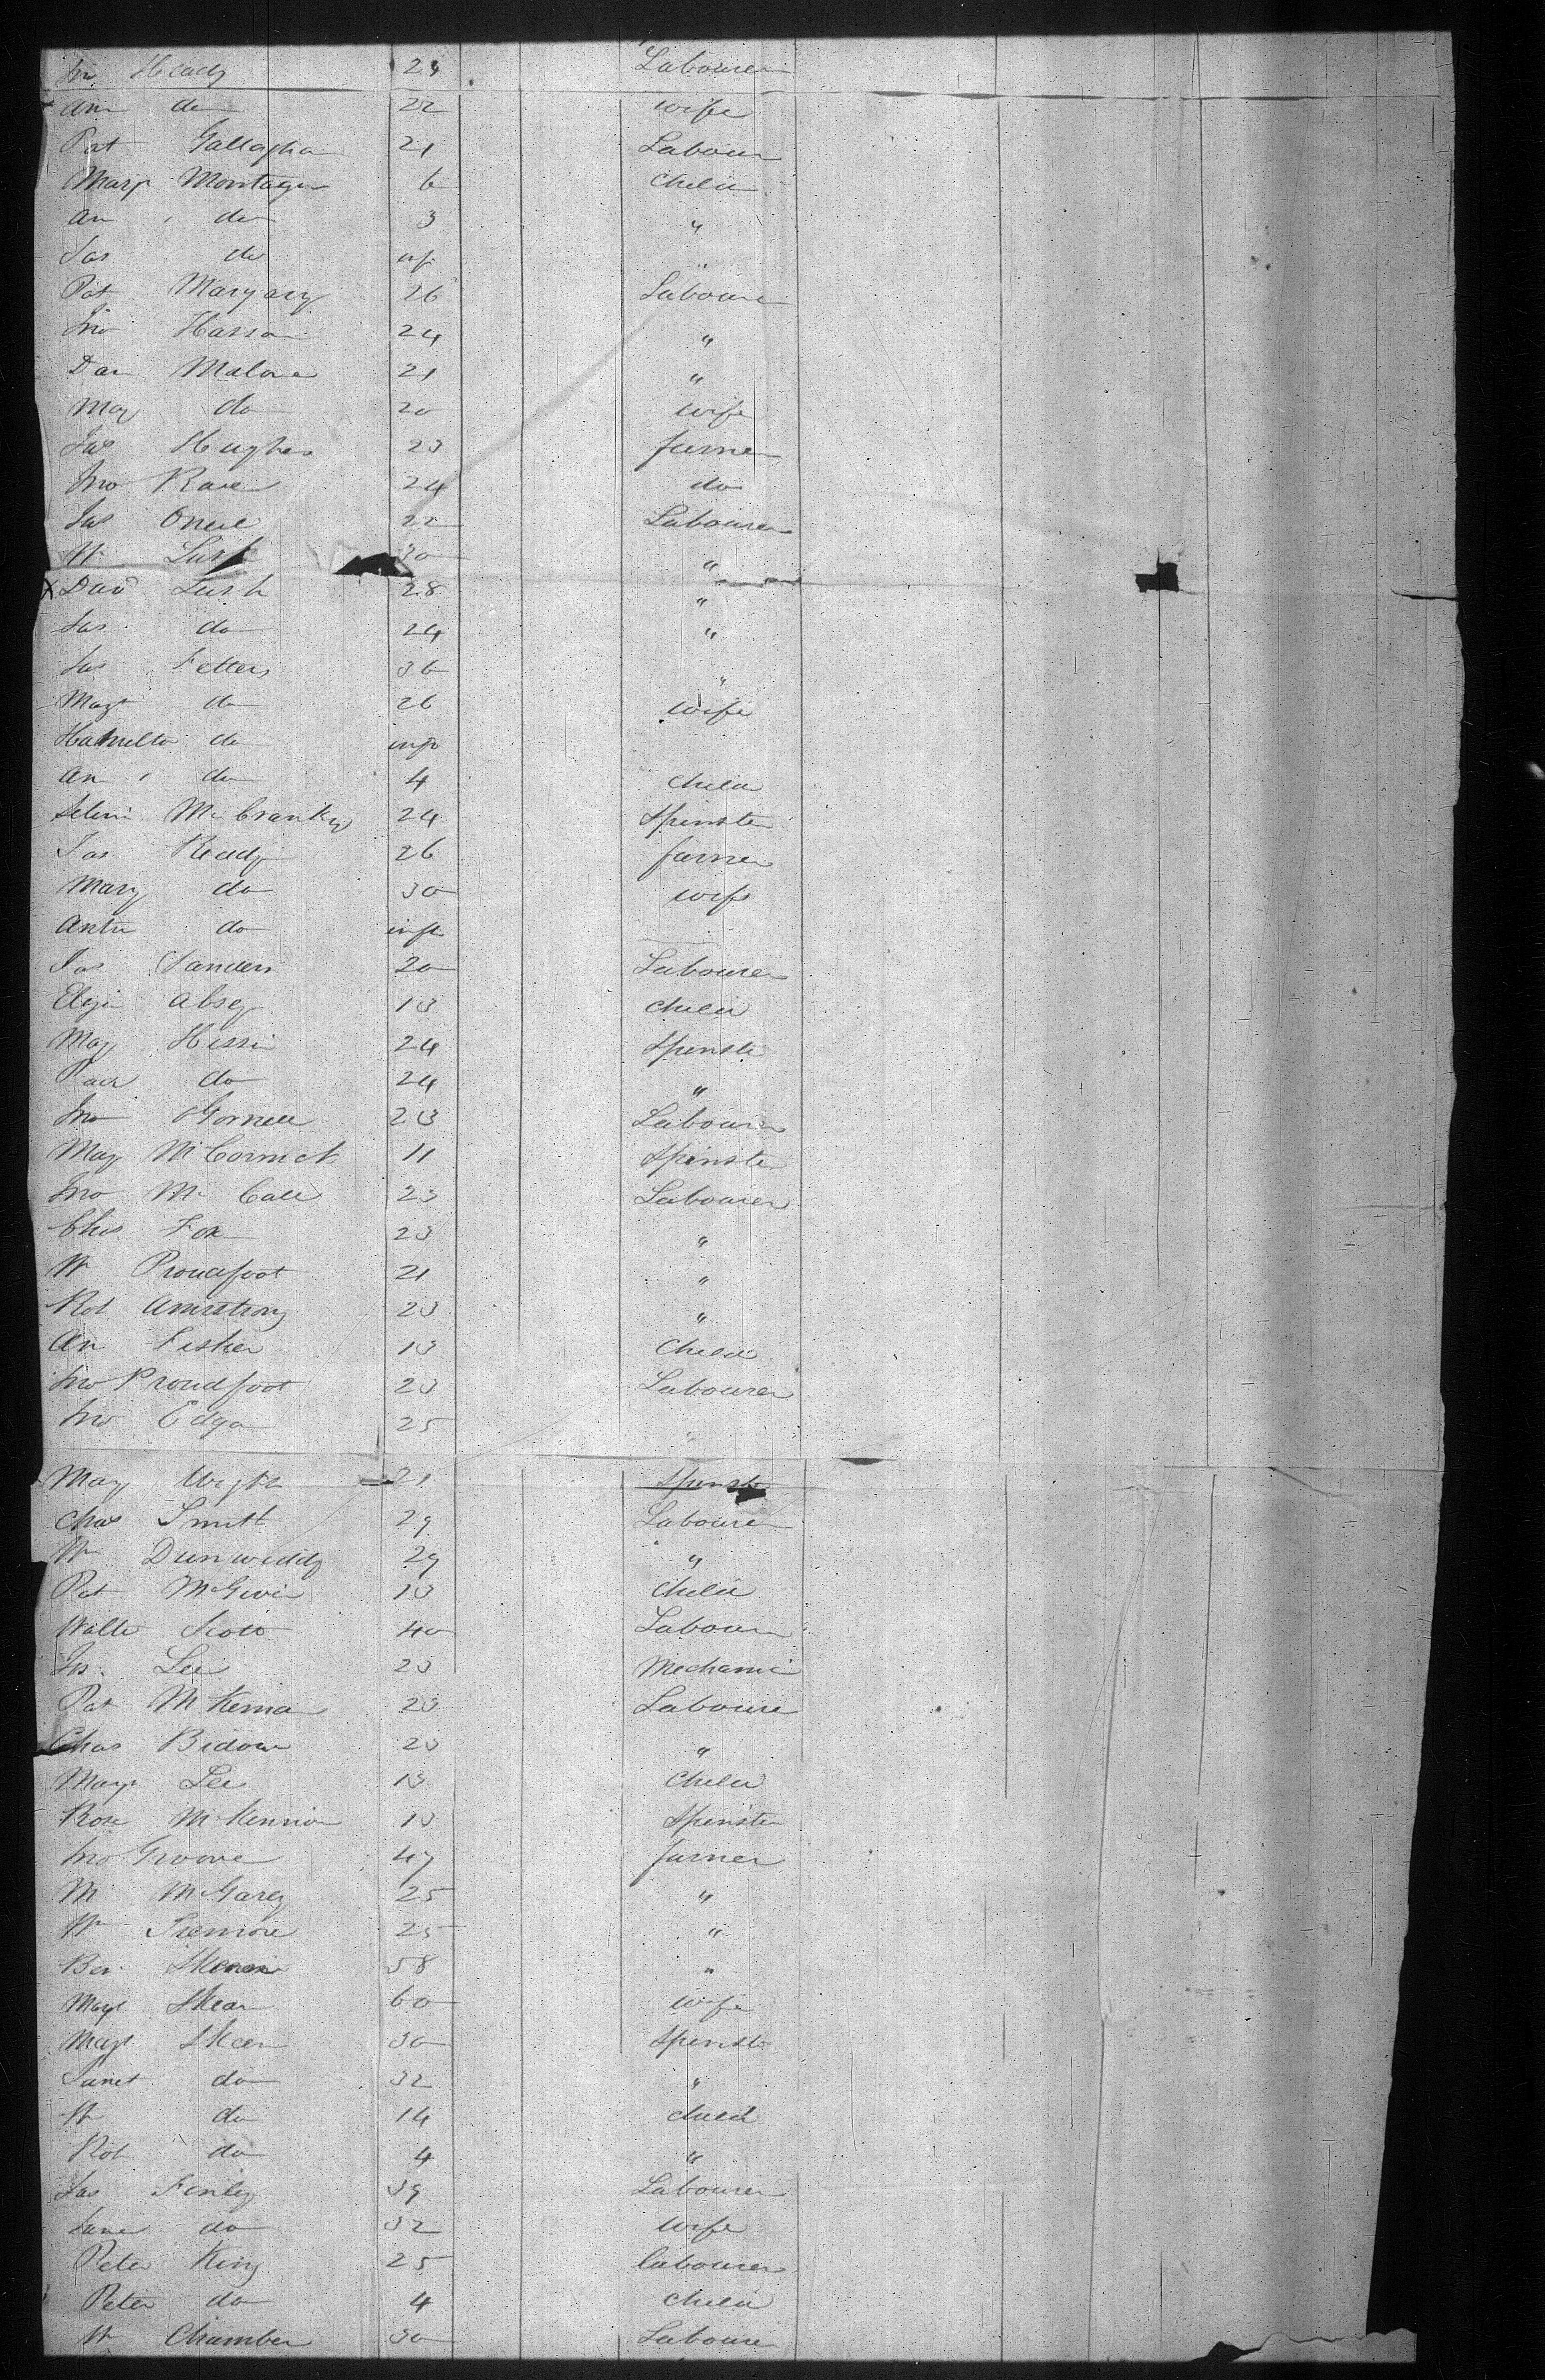 Jno Heady 24 Labourer
Ann do 22 wife
Pat Gallagha 21 Labour
Mary Montagu 6 Child
An do 3 "
Jas do inf "
Pat 26 Laboure
Jno Hassan 24 "
Dan Malone 21 "
May do 20 wife
Jas Hughes 23 farmer
Jno 24 do
Jas Oneil 22 Labourer
W Lusk 30 "
X Davd Lusk 28 "
Jas do 24 "
Jas Fetters 36 "
Magt do 26 wife
Hamilto do inf
An do 4 Child
McCranky 24 Spinster
Jas Ready 26 farmer
Mary do 30 wife
do inft
Jas Sanders 20 Labourer
13 Child
May Hessin 24 Spinste
do 24 "
Jno 23 Labourer
May McCormick 11 Spinster
Jno McCall 23 Labourer
Chas Fox 23 "
W Proudfoot 21 "
Rob Armstrong 23 "
An Fisher 13 Child
Jno Proudfoot 23 Labourer
Jno Edga 25 "
May Wight 21 Spinste
Chas Smith 29 Labourer
W Dunwiddy 29 "
Pat McGivir 13 Child
Walte Scott 40 Labour
Jas Lee 23 Mechanic
Pat McKerna 23 Laboure
Chas 23 "
Magt Lee 13 Child
Rose McKenna 13 Spinster
Jno Groove 47 farmer
M McGarey 25 "
W 25 "
Ben 58 "
Magt Skean 60 wife
Magt Skeen 30 Spinste
Janet do 32 "
W do 14 Child
Rob do 4 "
Jas Finley 39 Labourer
Jane do 32 wife
Peter King 25 labourer
Peter do 4 Child
W Chamber 30 Laboure